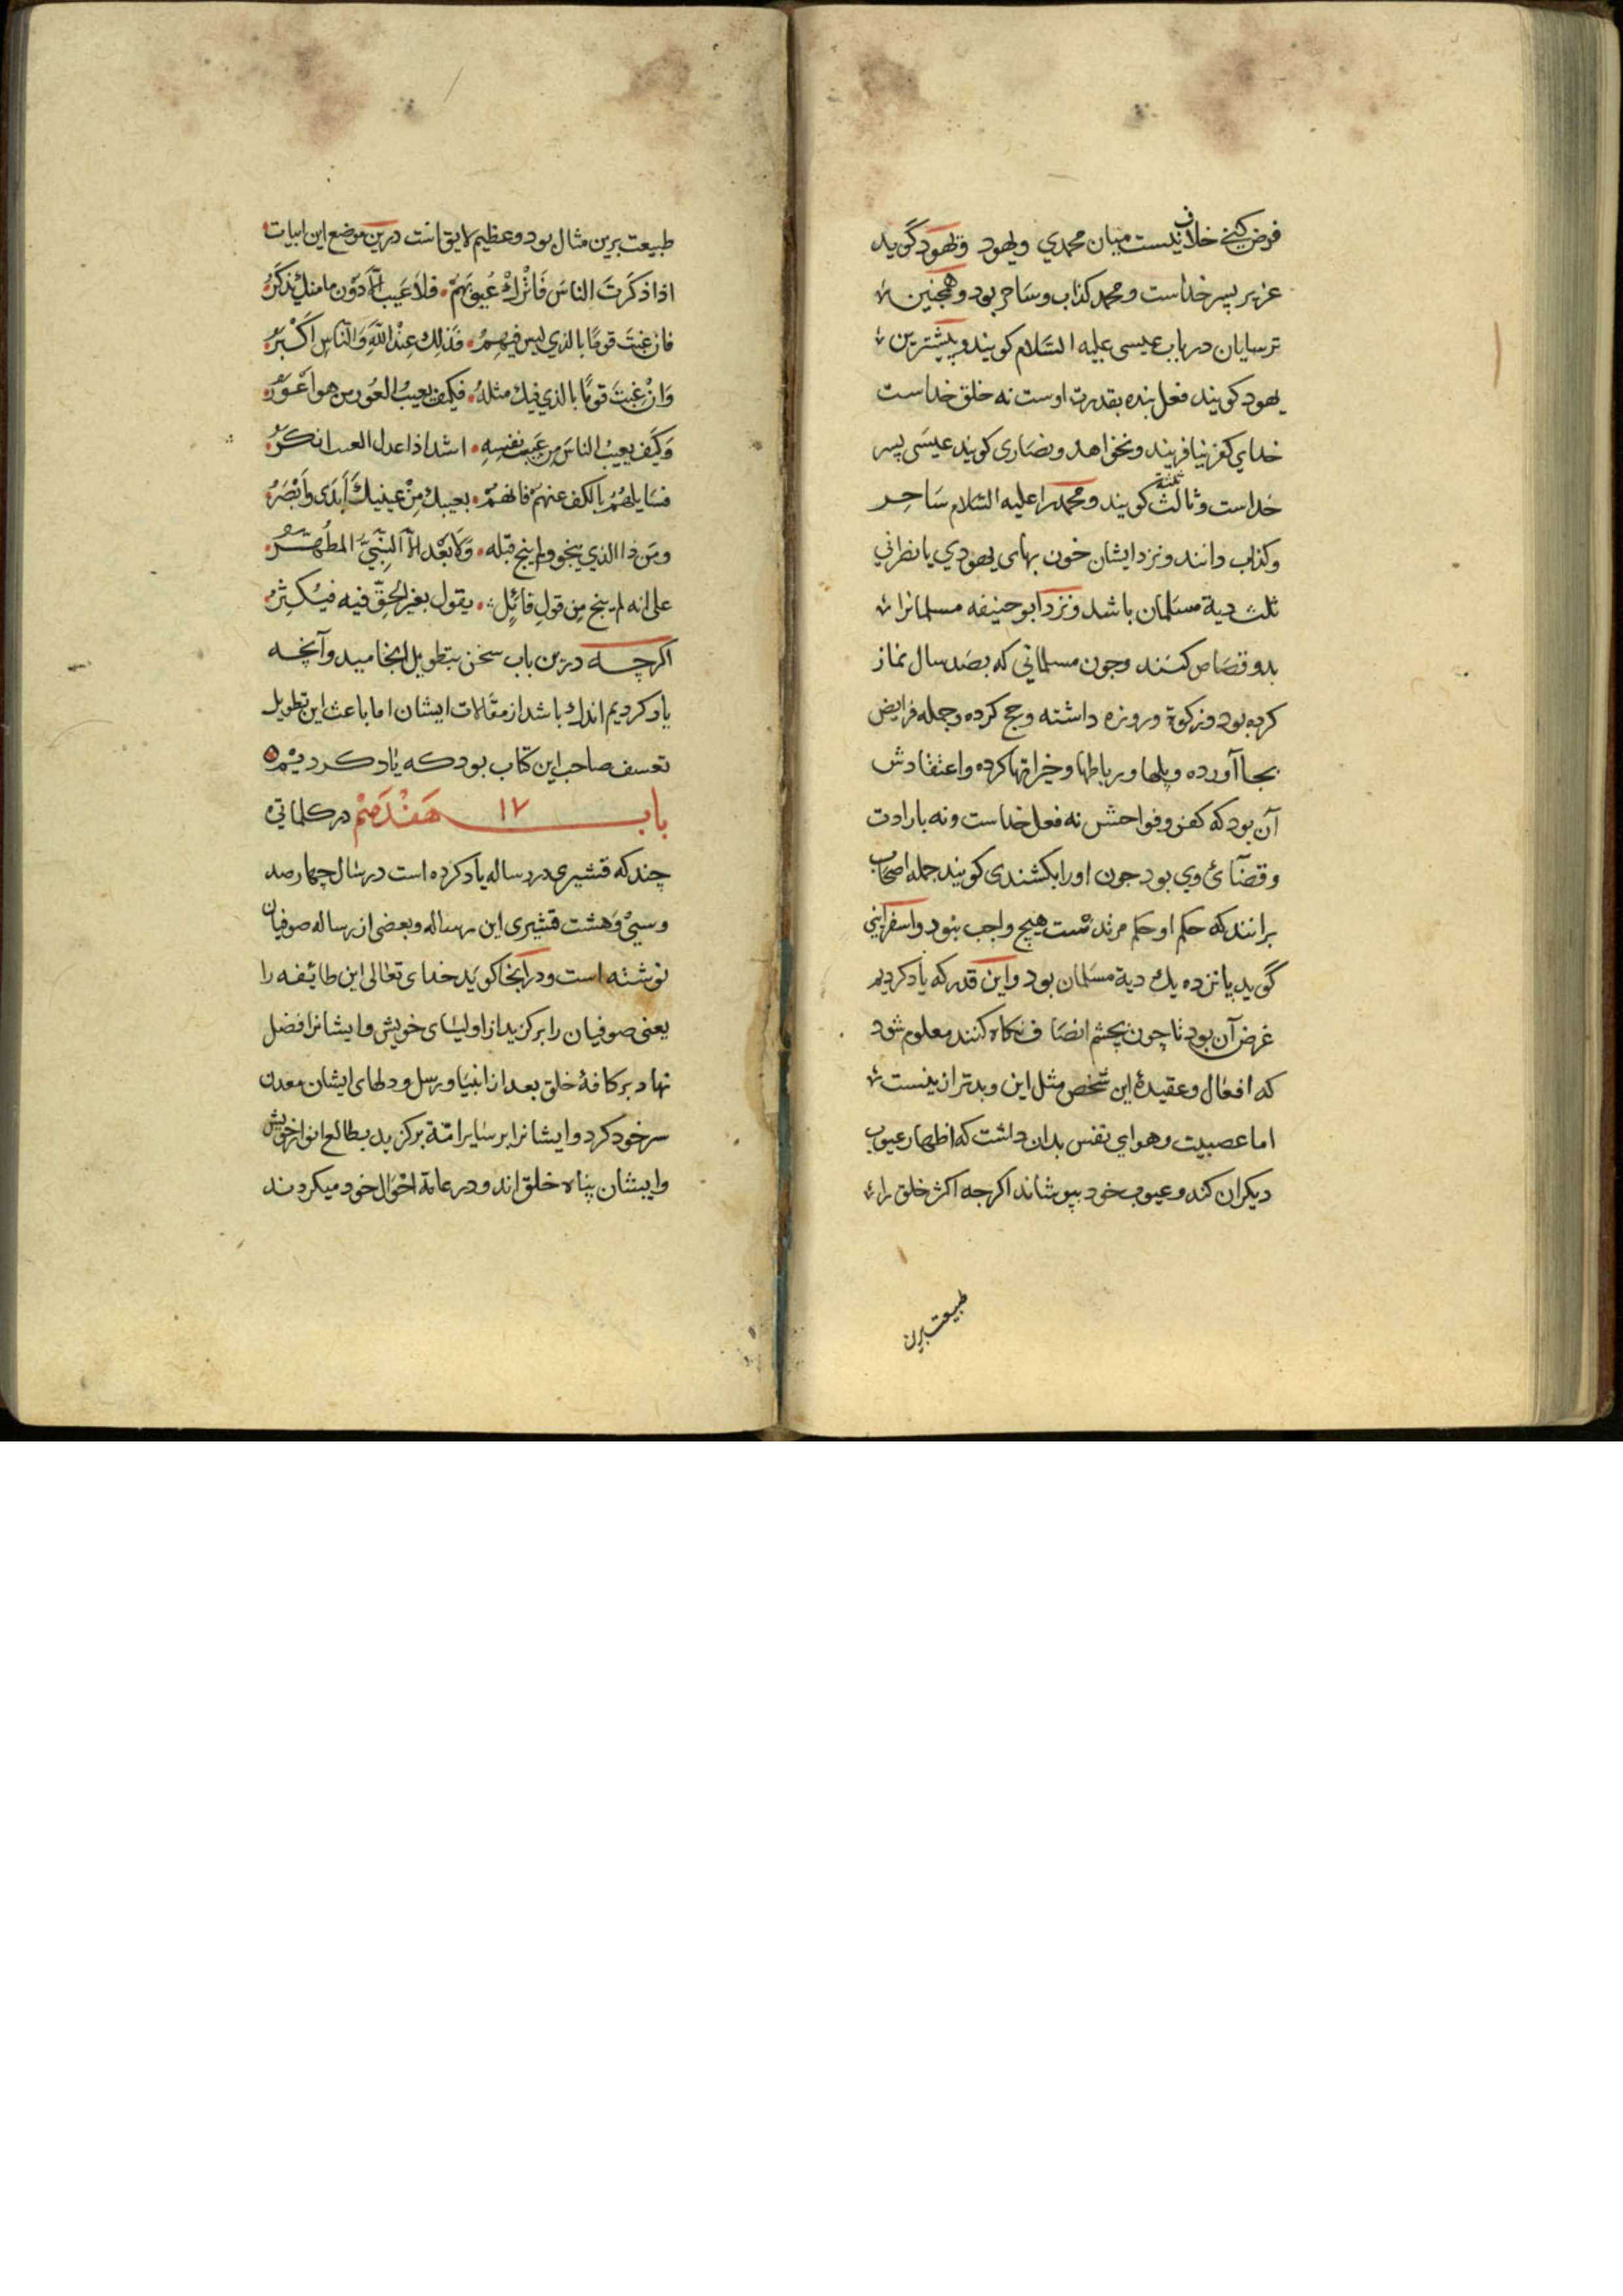 فرض کنی خلاف نیست میان محمدي ویهود ویهود گوید
عزیر پسر خداست ومحمد کذاب وساحر بود وهمچنین
ترسایان در باب عیسی علیه السلام کویند وبیشترین
یهود کویند فعل بنده بقدرت اوست نه خلق خداست
خدای کفر نیافریند ونخواهد ونصاری کویند عیسی پسر
خداست وثالث ثلثة کویند ومحمد را علیه السلام ساحر
وکذاب دانند ونزد ایشان خون بهای یهودي یا نصراني
ثلث دیة مسلمان باشد ونزد ابو حنیفه مسلمانرا
بدو قصاص کنند وچون مسلمانی که بصد سال نماز
کرده بود وزکوة وروزه داشته وحج کرده وجمله فرایض
بجا آورده وپلها ورباطها وخیراتها کرده واعتقادش
آن بود که کفر وفواحش نه فعل خداست ونه بارادت
وقضآئ وي بود چون اورا بکشندی کویند جمله اصحاب
برانند که حکم او حکم مرتدست هیچ واجب نبود واسفرایني
گوید پانزده یك دیة مسلمان بود واین قدر که یاد کردیم
غرض آن بود تا چون بچشم انصاف نکاه کنند معلوم شود
که افعال وعقیدهٔ این شخص مثل این وبدتر ازینست
اما عصبیت وهوای نفس بدان داشت که اظهار عیوب
دیکران کند وعیوب خود بپوشاند اکرچه اکثر خلق را
طبیعت برین
طبیعت برین مثال بود وعظیم لایق است درین موضع این ابیات
اذا ذکرت الناس فاترك عیوبهم فلا عیب الا دون ما منك یذکر
فان عبت قوما بالذي لیس فیهم فذلك عند الله والناس اکبر
وان عبت قوما بالذي فیك مثله فکیف یعیب العور من هو اعور
وکیف یعیب الناس من عیب نفسه اشد اذا عدل العیب انکر
فسایلهم بالکف عنهم فانهم بعیبك من عینیك ابدی وابصر
ومن ذا الذي ینجو ولم ینج قبله ولا بعد الا النبي المطهر
علی انه لم ینج من قول قائل یقول بغیر الحق فیه فیکثر
اکرچه درین باب سخن بتطویل انجامید وآنچه
یاد کردیم اندك باشد از مقالات ایشان اما باعث این تطویل
تعسف صاحب این کتاب بود که یاد کردیم
باب ١٧ هفدهم در کلماتی
چند که قشیری در رساله یاد کرده است در سال چهارصد
وسی وهشت قشیری این رساله وبعضی از رساله صوفیان
نوشته است ودر آنجا کوید خدای تعالی این طائفه را
یعنی صوفیان را برکزید از اولیای خویش وایشانرا افضل
نهاد بر کافهٔ خلق بعد از انبیا ورسل ودلهای ایشان معدن
سر خود کرد وایشانرا بر سایر امّة برکزید بطالع انوار خویش
وایشان پناه خلق اند ودر عامة احوال خود میکردند